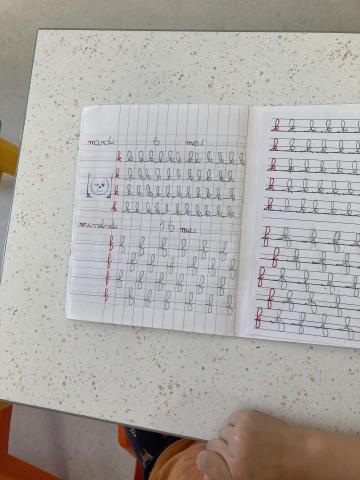 mardi 6 mai
k k k k k k k k k k k k
k k k k k k k k k k k
k k k k k k k k k k k
k k k k k k k k k k k
vendredi 16 mai
f f f f f f f
f f f f f f
f f f f f f f
f f f f f f
k k k k k k
k k k k k k
k k k k k k
k k k k k k
k k k k k k
f f f f
f f f f
f f f f
f f f f
f f f f f